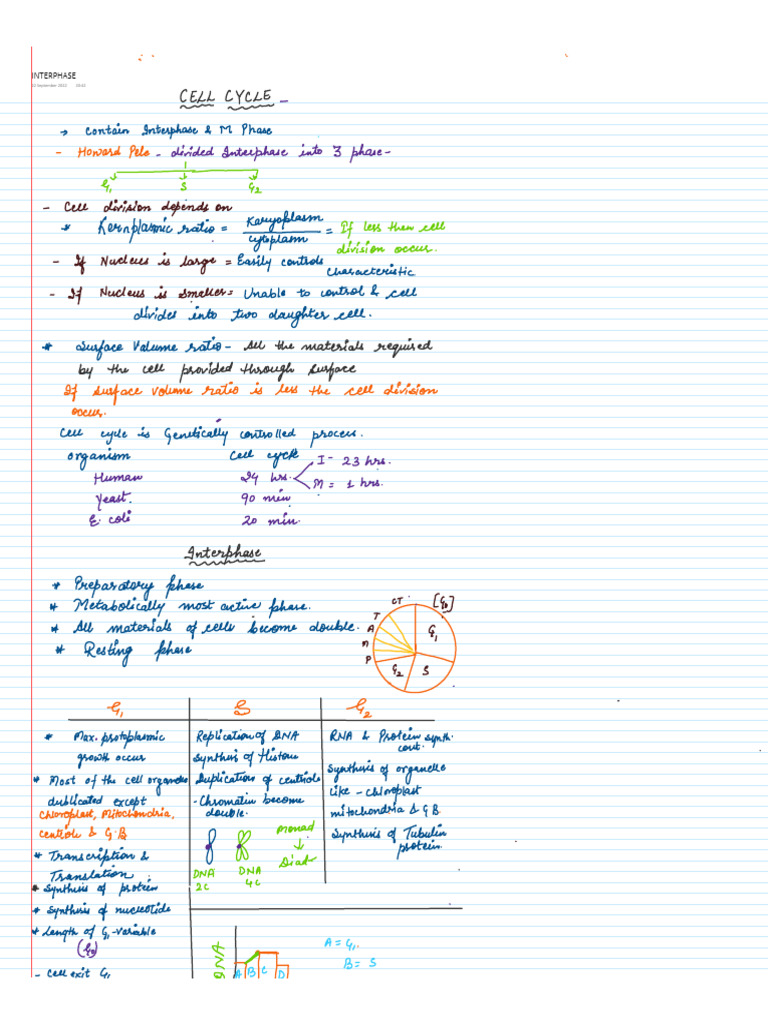 INTERPHASE
CELL CYCLE -
→ Contain Interphase & M Phase
- Howard Pele - divided Interphase into 3 phase -
G1 S G2
- Cell division depends on
* Kernplasmic ratio = Karyoplasm / cytoplasm = If less then cell division occur.
- If Nucleus is large = Easily controls characteristic
- If Nucleus is smaller = Unable to control & cell
divides into two daughter cell.
* Surface Volume ratio - All the materials required
by the cell provided through surface
If surface volume ratio is less the cell division
occur.
Cell cycle is Genetically controlled process.
organism Cell cycle
Human 24 hrs. I - 23 hrs. M = 1 hrs.
Yeast. 90 min
E. coli 20 min.
Interphase
* Preparatory phase
* Metabolically most active phase.
* All materials of cells become double.
* Resting phase
CT [G0]
T
A
M
P
G1
G2 S
G1 S G2
* Max. protoplasmic
growth occur
* Most of the cell organelles
dublicated except
Chloroplast, Mitochondria,
centriole & G.B
* Transcription &
Translation.
* Synthesis of protein
* Synthesis of nucleotide
* Length of G1-variable
(G0)
- Cell exit G1
Replication of DNA
Synthesis of Histone
Duplication of centriole
- Chromatin become
double.
Monad
↓
Diad
DNA DNA
2C 4C
RNA & Protein synth.
cont.
Synthesis of organelle
like - chloroplast
mitochondria & G.B.
Synthesis of Tubulin
protein.
DNA
A B C D
A = G1.
B = S